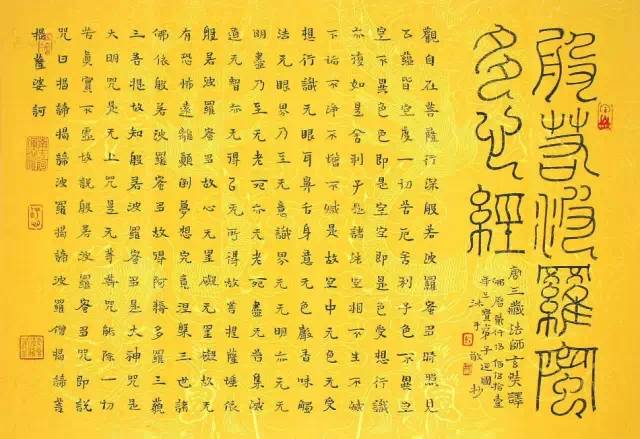 般若波羅蜜
多心經
唐三藏法師玄奘譯
佛曆貳仟伍佰伍拾壹
年三寶弟子運國
沐手敬抄
觀自在菩薩行深般若波羅蜜多時照見
五蘊皆空度一切苦厄舍利子色不異
空不異色色即是空空即是色受想行識
亦復如是舍利子是諸法空相不生不滅
不垢不淨不增不減是故空中无色无受
想行識无眼耳鼻舌身意无色聲香味觸
法无眼界乃至无意識界无无明亦无无
明盡乃至无老死亦无老死盡无苦集滅
道无智亦无得以无所得故菩提薩埵依
般若波羅蜜多故心无罣礙无罣礙故无
有恐怖遠離顛倒夢想究竟涅槃三世諸
佛依般若波羅蜜多故得阿耨多羅三藐
三菩提故知般若波羅蜜多是大神咒是
大明咒是无上咒是无等等咒能除一切
苦真實不虛故說般若波羅蜜多咒即說
咒曰揭諦揭諦波羅揭諦波羅僧揭諦菩
提薩婆訶